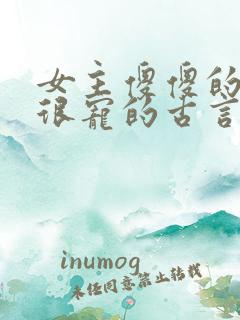 女主傻傻的
很宠的古言
inumog
未经同意禁止转载